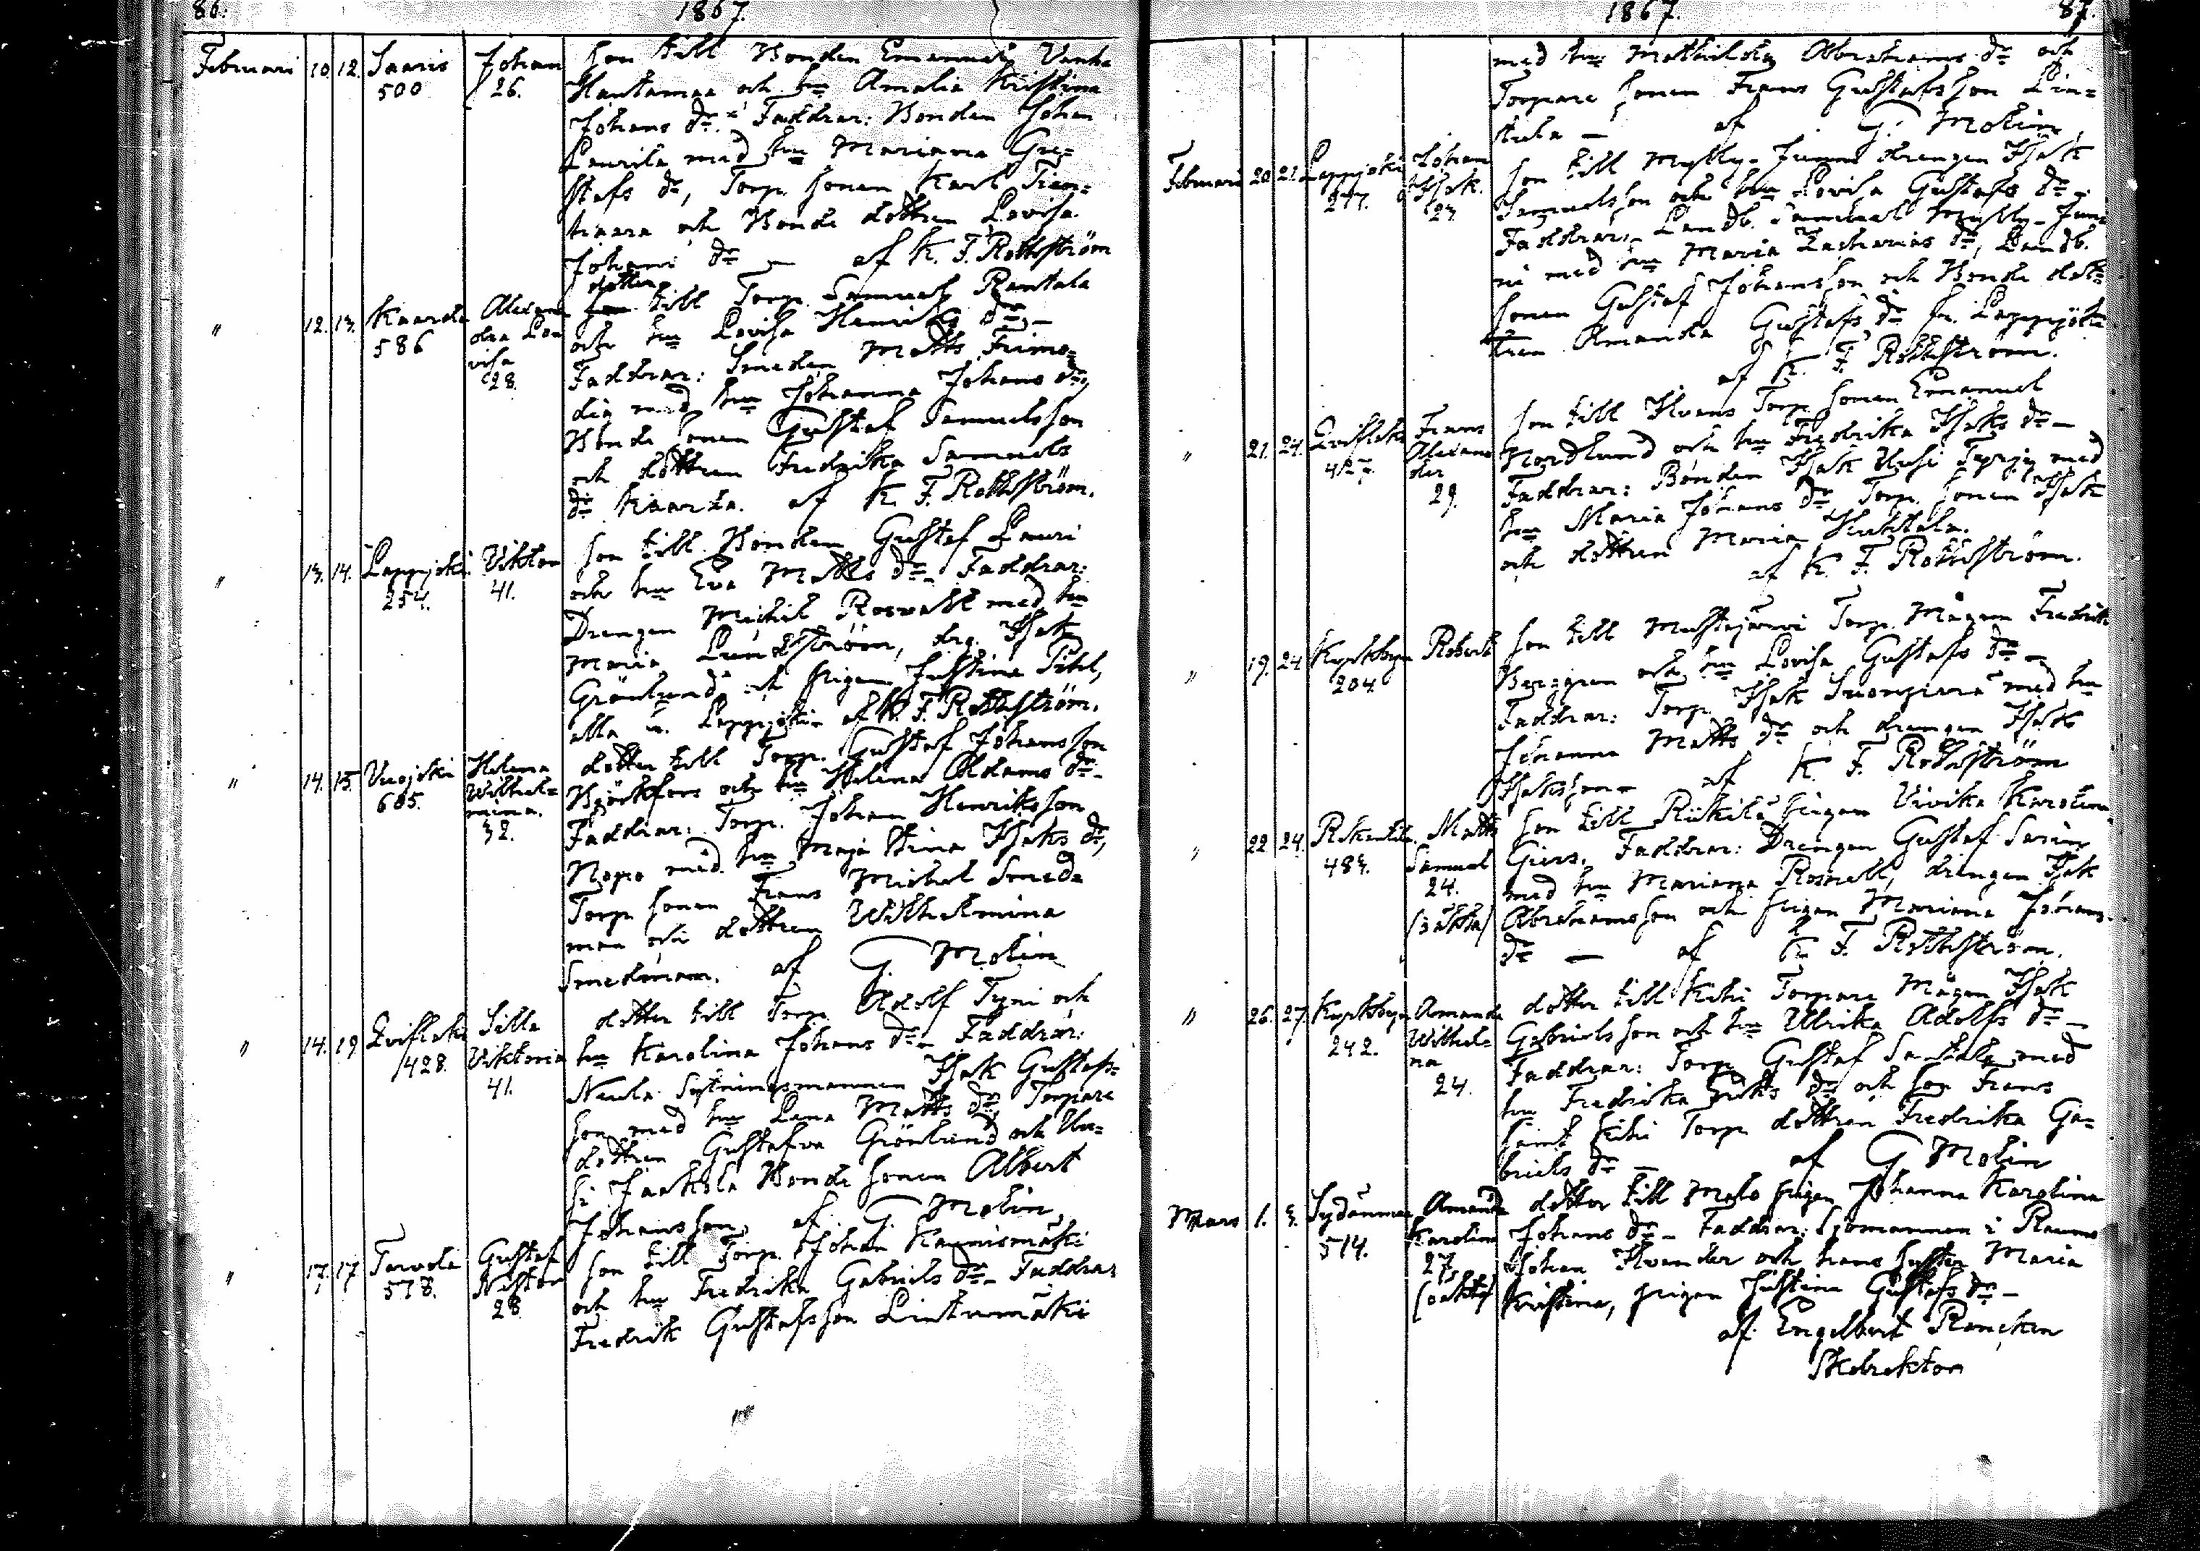 86. 1867.
Februari 10. 12. Saaris 500 Johan 26.
son till Bonden Emanuel Vanha
Hantamaa och hu Amalia Kristina
Johans dr. Faddrar: Bonden Johan
Laurila med hu Mariana Gu-
stafs dr, Torp. sonen Karl
och Bonde dottren Lovisa
Johans dr — af K. F. Rothström
" 12. 13. Kaarela 586 Alexan dra Lo visa 28.
dotter
son till Torp. Samuel Rantala
och hu Lovisa Henriks dr. —
Faddrar: Smeden Matts
med hu Johanna Johans dr,
Bonde sonen Gustaf Samuelsson
och dottren Fredrika Samuels
dr Kaarela. af K. F. Rothström.
" 13. 14. Lappijoki 254. Viktor 41.
son till Bonden Gustaf Lauri
och hu Eva Matts dr — Faddrar:
Drengen Michel Rosvall med hu
Maria Lundström, drg. Isak
Grönlund och pigan Justina Pihl,
alla fr. Lappijoki — af K. F. Rothström.
" 14. 15. Vuojoki 605. Helena Wilhel- mina. 32.
dotter till Torp. Gustaf Johansson
Björkfors och hu Helena Adams dr —
Faddrar: Torp. Johan Henriksson
Nopo med hu Maja Stina Isaks dr,
Torp. sonen Frans Michel Smeds
man och dottren Wilhelmina
Smedsman. af G. Molin
" 14. 19 Qvifleks 428. Silla Viktoria 41.
dotter till Torp. Adolf Tyni och
hu Karolina Johans dr — Faddrar:
Sytningsmannen Isak Gustafs-
son med hu Lena Matts dr, Torpare
dottren Gustafva Grönlund och
Jaakola Bonde sonen Albert
Johansson, af G. Molin,
" 17. 17. Tarvola 578. Gustaf Nestor 28
son till Torp. Johan Kaunismäki
och hu Fredrika Gabriels dr — Faddrar
Fredrik Gustafsson Lintumäki
1867. 87.
med hu Mathilda Abrahams dr och
Torpare sonen Frans Gustafsson Lin-
tula — af G. Molin,
Februari 20. 21. Lappijoki 277. Johan Isak. 27.
son till Mylly-Junni drengen Isak
Samuelsson och hu Lovisa Gustafs dr —
Faddrar: Landb. Emanuel Mylly-Jun-
ni med hu Maria Zacharias dr, Landb.
sonen Gustaf Johansson och Bonde dot-
tren Amanda Gustafs dr fr. Lappijoki
af K. F. Rothström.
" 21. 24. Qvifleks 427. Frans Alexan der 29.
son till Ilvans Torp. sonen Emanuel
Nordlund och hu Fredrika Isaks dr —
Faddrar: Bonden Isak Uusi Tyrja med
hu Maria Johans dr, Torp. sonen Isak
och dottren Maria Huhtala.
af K. F. Rothström.
" 19. 24 Kyrkbyn 204. Robert
son till Mustajärvi Torp. Mågen Fredrik
Berggren och hu Lovisa Gustafs dr —
Faddrar: Torp. Isak Suonperä med hu
Johanna Matts dr och drengen Isak
Isaksson — af K. F. Rothström
" 22. 24. Rikantila 483. Matts Samuel 24. (oäkta)
son till Riikilä pigan Vivika Karolina
Giers. Faddrar: Drengen Gustaf Sarin
med hu Mariana Rosnell, drengen Isak
Abrahamsson och pigan Mariana Johans
dr — af K. F. Rothström.
" 26. 27. Kyrkbyn 242. Amanda Wilhel- na 24.
dotter till Kihi Torpare Mågen Isak
Gabrielsson och hu Ulrika Adolfs dr —
Faddrar: Torp. Gustaf Santala med
hu Fredrika Eriks dr och son Frans
samt Kihi Torp. dottren Fredrika Ga-
briels dr — af G. Molin
Mars 1. 3. Sydänmaa 514. Amanda Karolina 27. (oäkta)
dotter till Malo pigan Johanna Karolina
Johans dr — Faddrar: Sjömannen i Raumo
Johan Ilvander och hans hustru Maria
Kristina, pigan Justina Gustafs dr —
af Engelbert Rancken
Skolrektor